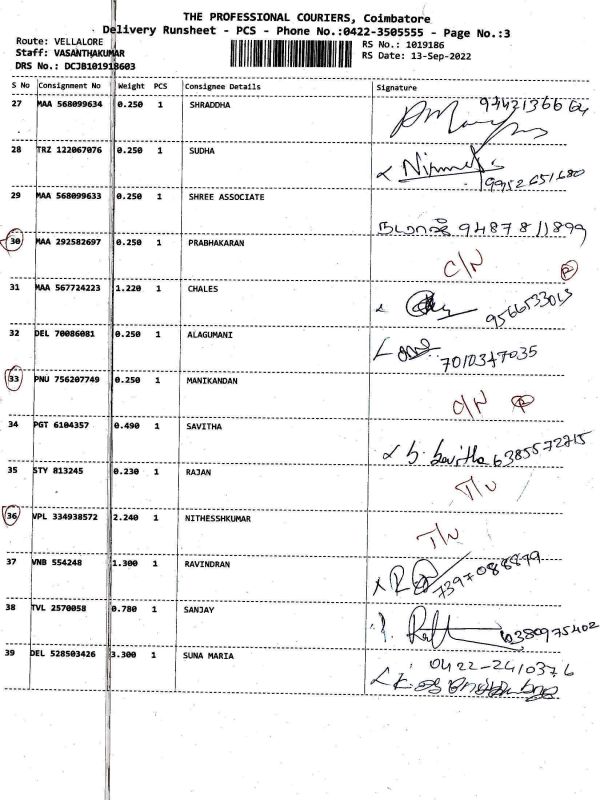 THE PROFESSIONAL COURIERS, Coimbatore
Delivery Runsheet - PCS - Phone No.:0422-3505555 - Page No.:3
Route: VELLALORE
RS No.: 1019186
Staff: VASANTHAKUMAR
RS Date: 13-Sep-2022
DRS No.: DCJB101918603
S No Consignment No Weight PCS Consignee Details Signature
27 MAA 568099634 0.250 1 SHRADDHA
28 TRZ 122067076 0.250 1 SUDHA 9952651680
29 MAA 568099633 0.250 1 SHREE ASSOCIATE 9487811899
30 MAA 292582697 0.250 1 PRABHAKARAN C/N P
31 MAA 567724223 1.220 1 CHALES
32 DEL 70086081 0.250 1 ALAGUMANI 7010347035
33 PNU 756207749 0.250 1 MANIKANDAN C/N P
34 PGT 6104357 0.490 1 SAVITHA Savitha 6385572715
35 STY 813245 0.230 1 RAJAN
36 VPL 334938572 2.240 1 NITHESSHKUMAR
37 VNB 554248 1.300 1 RAVINDRAN 7397088879
38 TVL 2570058 0.780 1 SANJAY 6380975402
39 DEL 528503426 3.300 1 SUNA MARIA 0422-2410376